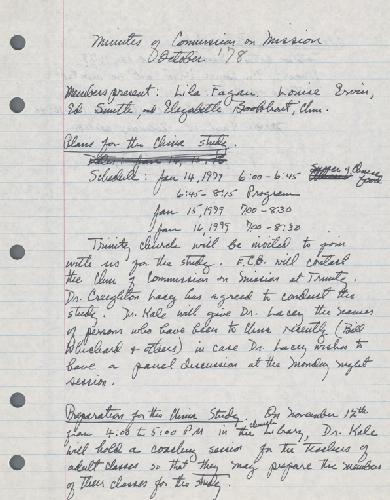 Minutes of Commission on Mission
October '78
Members present: Lila Fagan, Louise Ervin,
Ed Smith, and Elizabeth Bookhart, Chm.
Plans for the China study.
Schedule: Jan 14, 1979 6:00-6:45 Supper of Chinese food
6:45-8:15 Program
Jan 15, 1979 7:00-8:30
Jan 16, 1979 7:00-8:30
Trinity church will be invited to join
with us for the study. E.C.B. will contact
the Chm of Commission on Mission at Trinity.
Dr. Creighton Lacy has agreed to conduct the
study. Dr. Kale will give Dr. Lacy the names
of persons who have been to China recently (Bill
Whishard & others) in case Dr. Lacy wishes to
have a panel discussion at the Monday night
session.
Preparation for this China Study. On November 12th
from 4:00 to 5:00 P.M in the church library, Dr. Kale
will hold a coaching session for the teachers of
adult classes so that they may prepare the members
of their classes for the study.